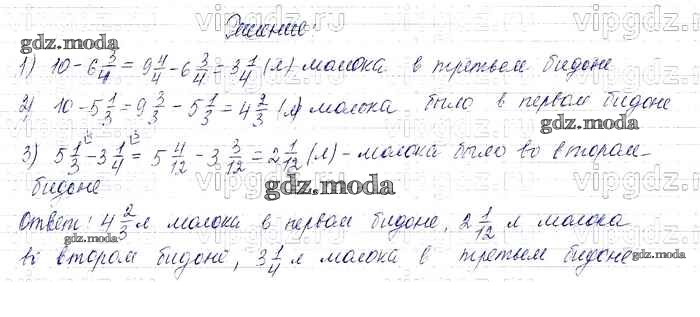 Решение
1) 10 - 6 3/4 = 9 4/4 - 6 3/4 = 3 1/4 (л) молока в третьем бидоне
2) 10 - 5 1/3 = 9 3/3 - 5 1/3 = 4 2/3 (л) молока было в первом бидоне
3) 5 1/3 - 3 1/4 = 5 4/12 - 3 3/12 = 2 1/12 (л) - молока было во втором
бидоне
Ответ: 4 2/3 л молока в первом бидоне, 2 1/12 л молока
во втором бидоне, 3 1/4 л молока в третьем бидоне
gdz.moda
gdz.moda
gdz.moda
gdz.moda
gdz.moda
gdz.moda
vipgdz.ru
vipgdz.ru
vipgdz.ru